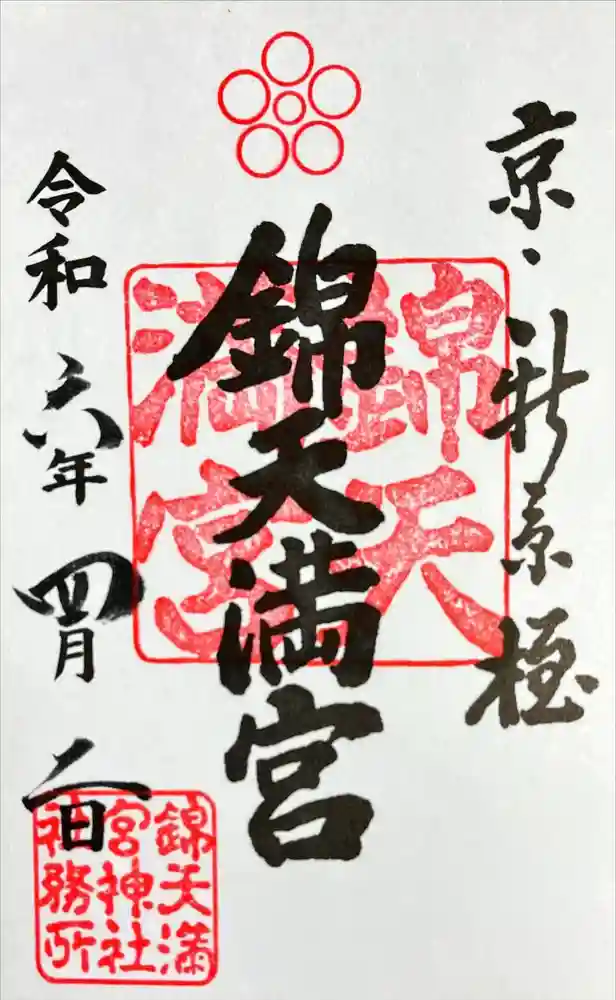 京・新京極
錦天満宮
錦天
満宮
令和六年四月二日
錦天満
宮神社
社務所